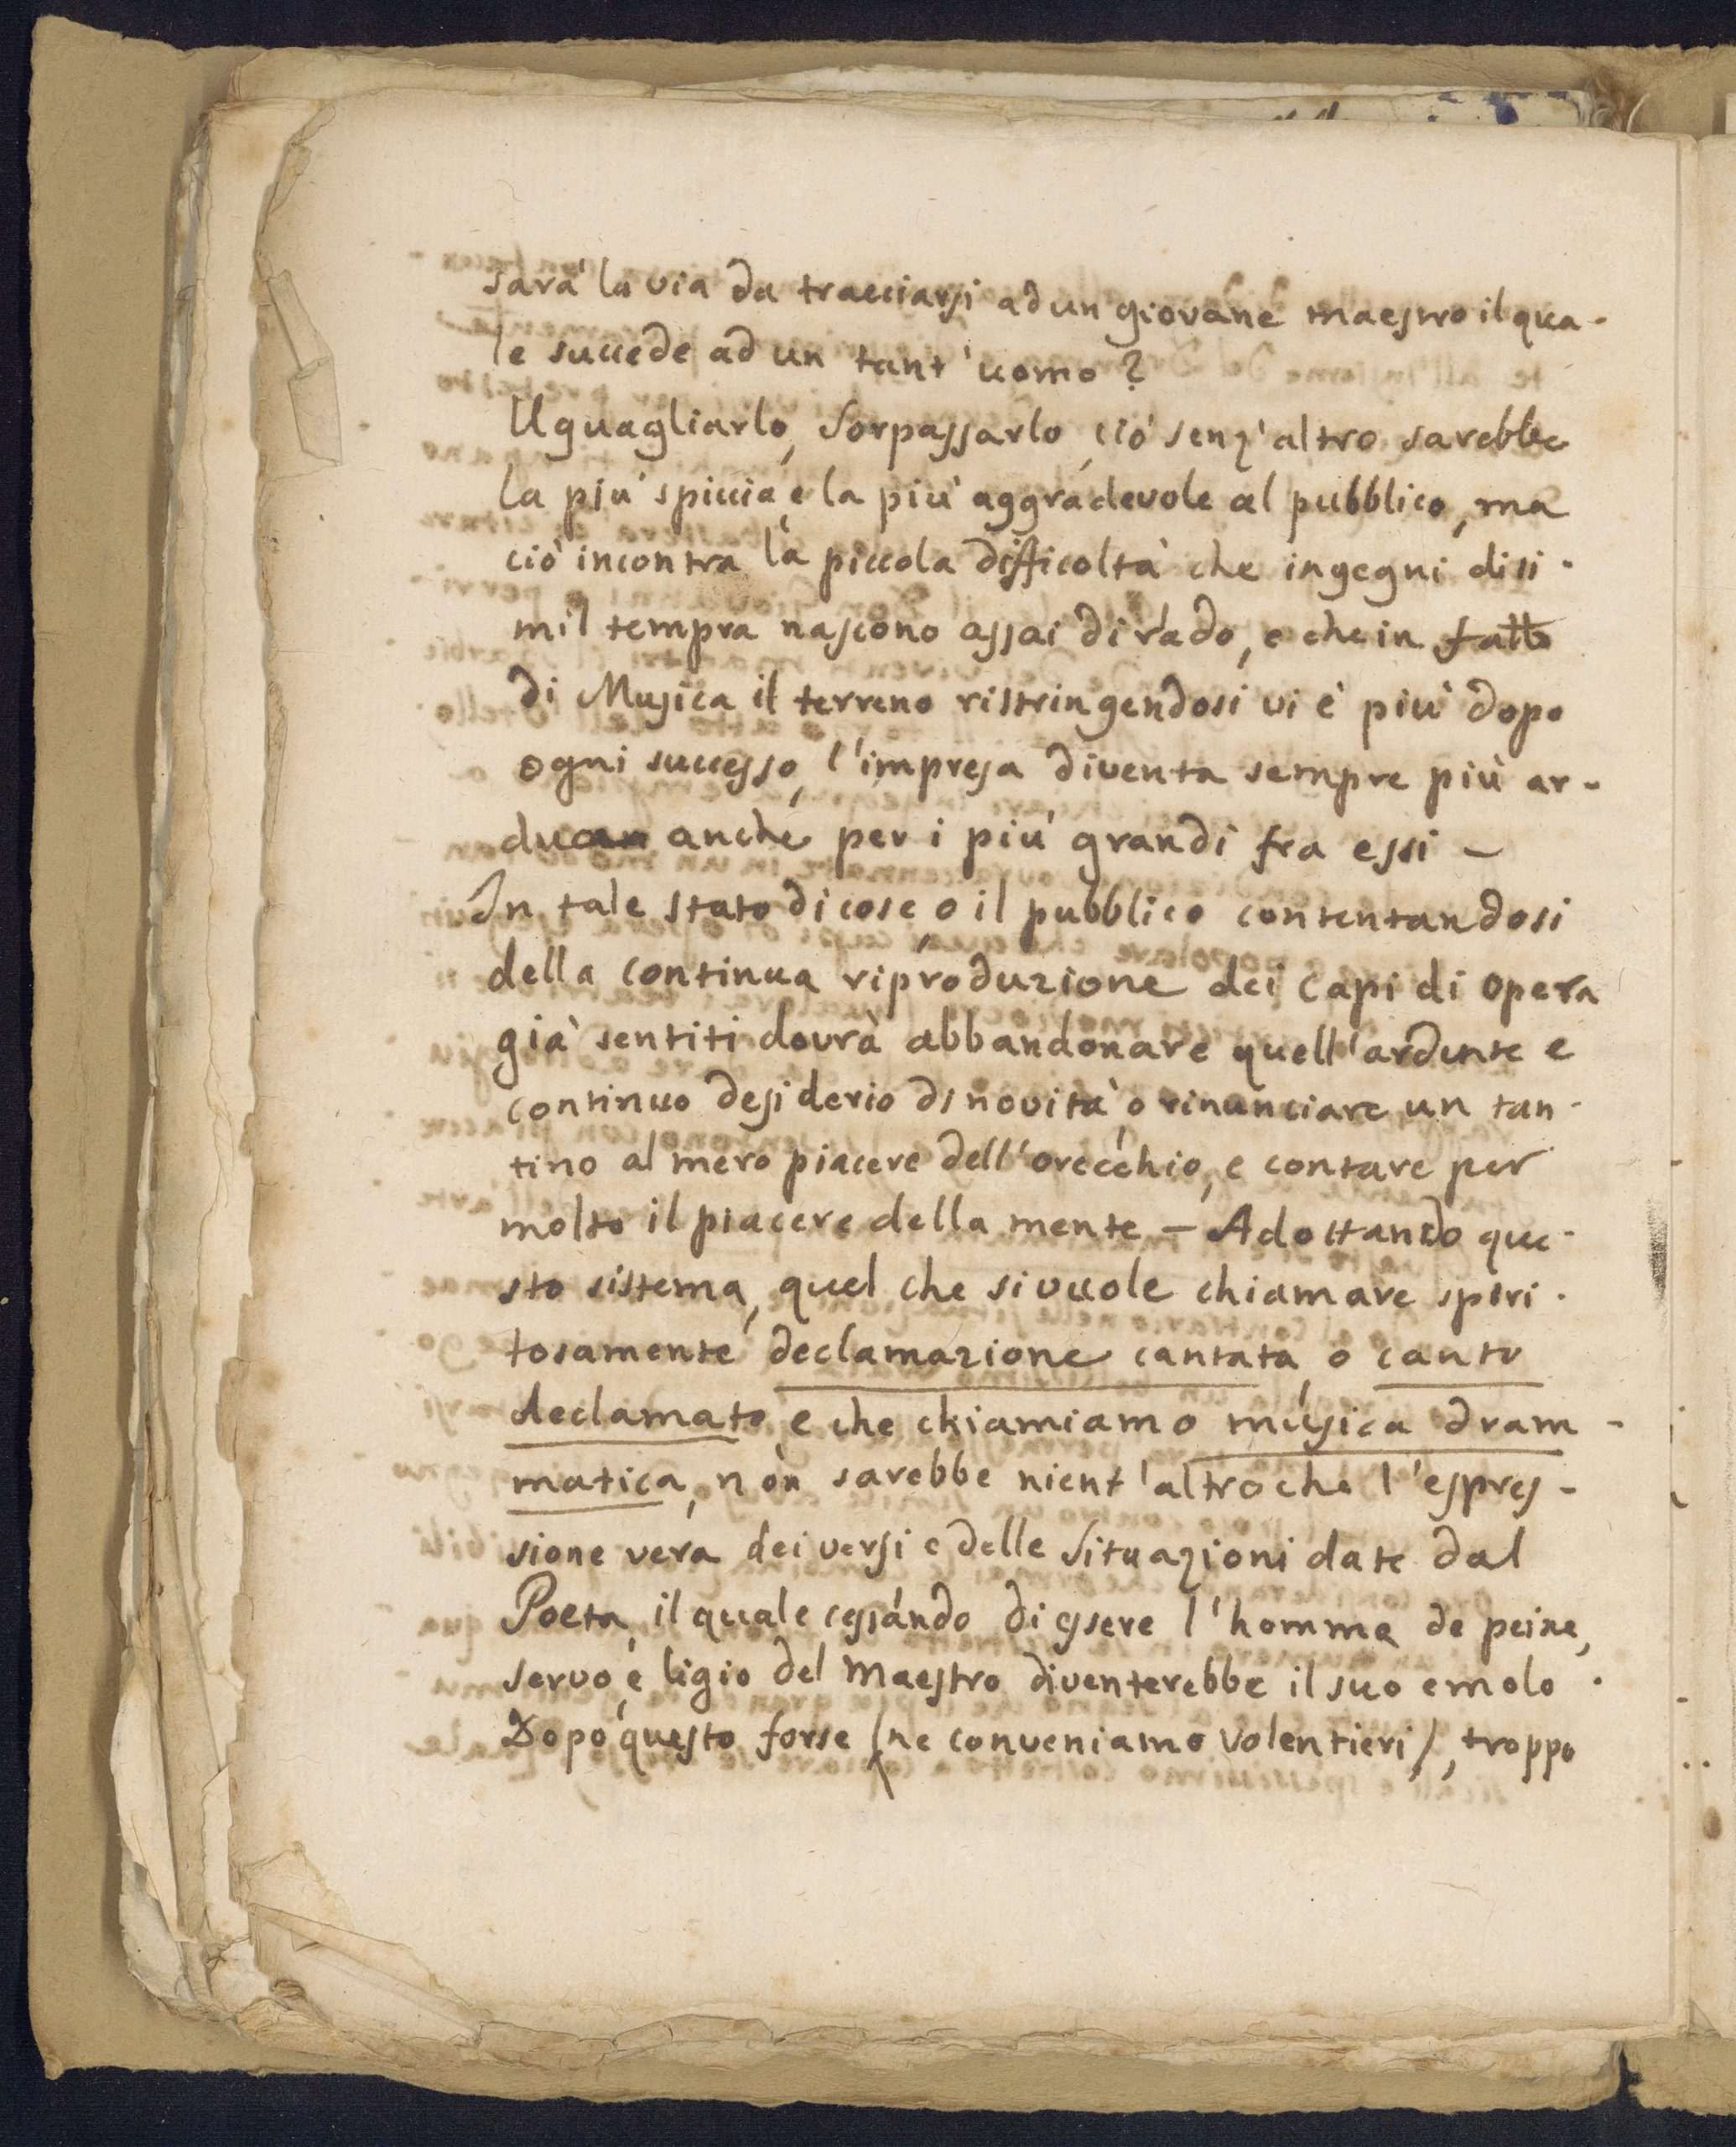 sarà la via da tracciarsi ad un giovane maestro il qua-
le succede ad un tant'uomo?
Uguagliarlo, Sorpassarlo, ciò senz'altro sarebbe
la più spiccia, e la più aggradevole al pubblico, ma
ciò incontra la piccola difficoltà che ingegni di si-
mil tempra nascono assai di rado, e che in fatto
di Musica il terreno ristringendosi vi è più dopo
ogni successo, l'impresa diventa sempre più ar-
dua anche per i più grandi fra essi –
In tale stato di cose, o il pubblico contentandosi
della continua riproduzione dei Capi di Opera
già sentiti dovrà abbandonare quell'ardente e
continuo desiderio di novità, o rinunciare un tan-
tino al mero piacere dell'orecchio, e contare per
molto il piacere della mente – Adottando que-
sto sistema, quel che si vuole chiamare spiri-
tosamente declamazione cantata, o canto
declamato, e che chiamiamo musica dram-
matica, non sarebbe nient'altro che l'espres-
sione vera dei versi e delle Situazioni date dal
Poeta, il quale cessando di essere l'homme de peine,
servo, e ligio del Maestro diventerebbe il suo emolo.
Dopo questo forse (ne conveniamo volentieri), troppo